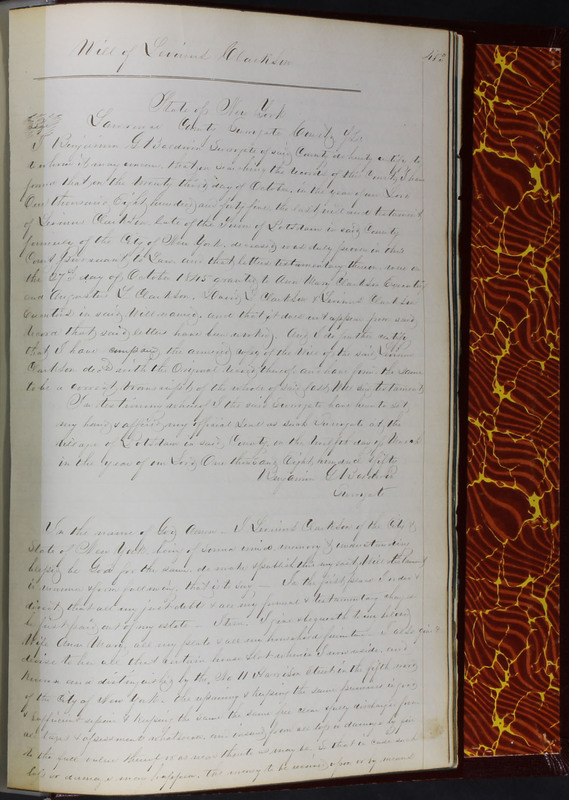 Will of Levinus Clarkson
State of New York
Lawrence County Surrogate County Ss
I Benjamin G Baldwin Surrogate of said County do hereby certify to
whom it may concern that on searching the records of the County I have
found that on the Twenty third day of October in the year of our Lord
One thousand Eight hundred and forty five the last will and testament
of Levinus Clarkson late of the Town of Potsdam in said County
formerly of the City of New York, deceased was duly proven in this
Court pursuant to Law and that letters testamentary thereon were on
the day of October 1845 granted to Ann Mary Clarkson Executrix
and Augustus L Clarkson, David L Clarkson & Levinus Clarkson
Executors in said Will named, and that it does not appear from said
record that said letters have been revoked. And I do further certify
that I have compared the annexed copy of the Will of the said Levinus
Clarkson decd with the Original record thereof and have found the same
to be a correct transcript of the whole of said last Will and testament
In testimony whereof I the said Surrogate have hereto set
my hand & affixed my official Seal as such Surrogate at the
village of Potsdam in said County on the day of March
in the year of our Lord One thousand Eight hundred & fifty
Benjamin G Baldwin
Surrogate
In the name of God Amen - I Levinus Clarkson of the City &
State of New York being of sound mind, memory & understanding
blessed be God for the same do make & publish this my last Will & Testament
in manner & form following, that is to say - In the first place I order &
direct that all my just debts & all my funeral & testamentary charges
be first paid out of my estate - Item. I give & bequeath to my beloved
Wife Ann Mary all my plate & all my household furniture. I also give &
devise to her all that certain house & lot whereon I now reside and
known and distinguished by the No 11 Harrison Street in the fifth ward
of the City of New York. She repairing & keeping the same premises in good
& sufficient repair & keeping the same free clear & fully discharged from
all taxes & assessments whatsoever and insured from all loss or damage by fire
to the full value thereof or as near thereto as may be & that in case such
loss or damage may happen, the money to be received upon or by means